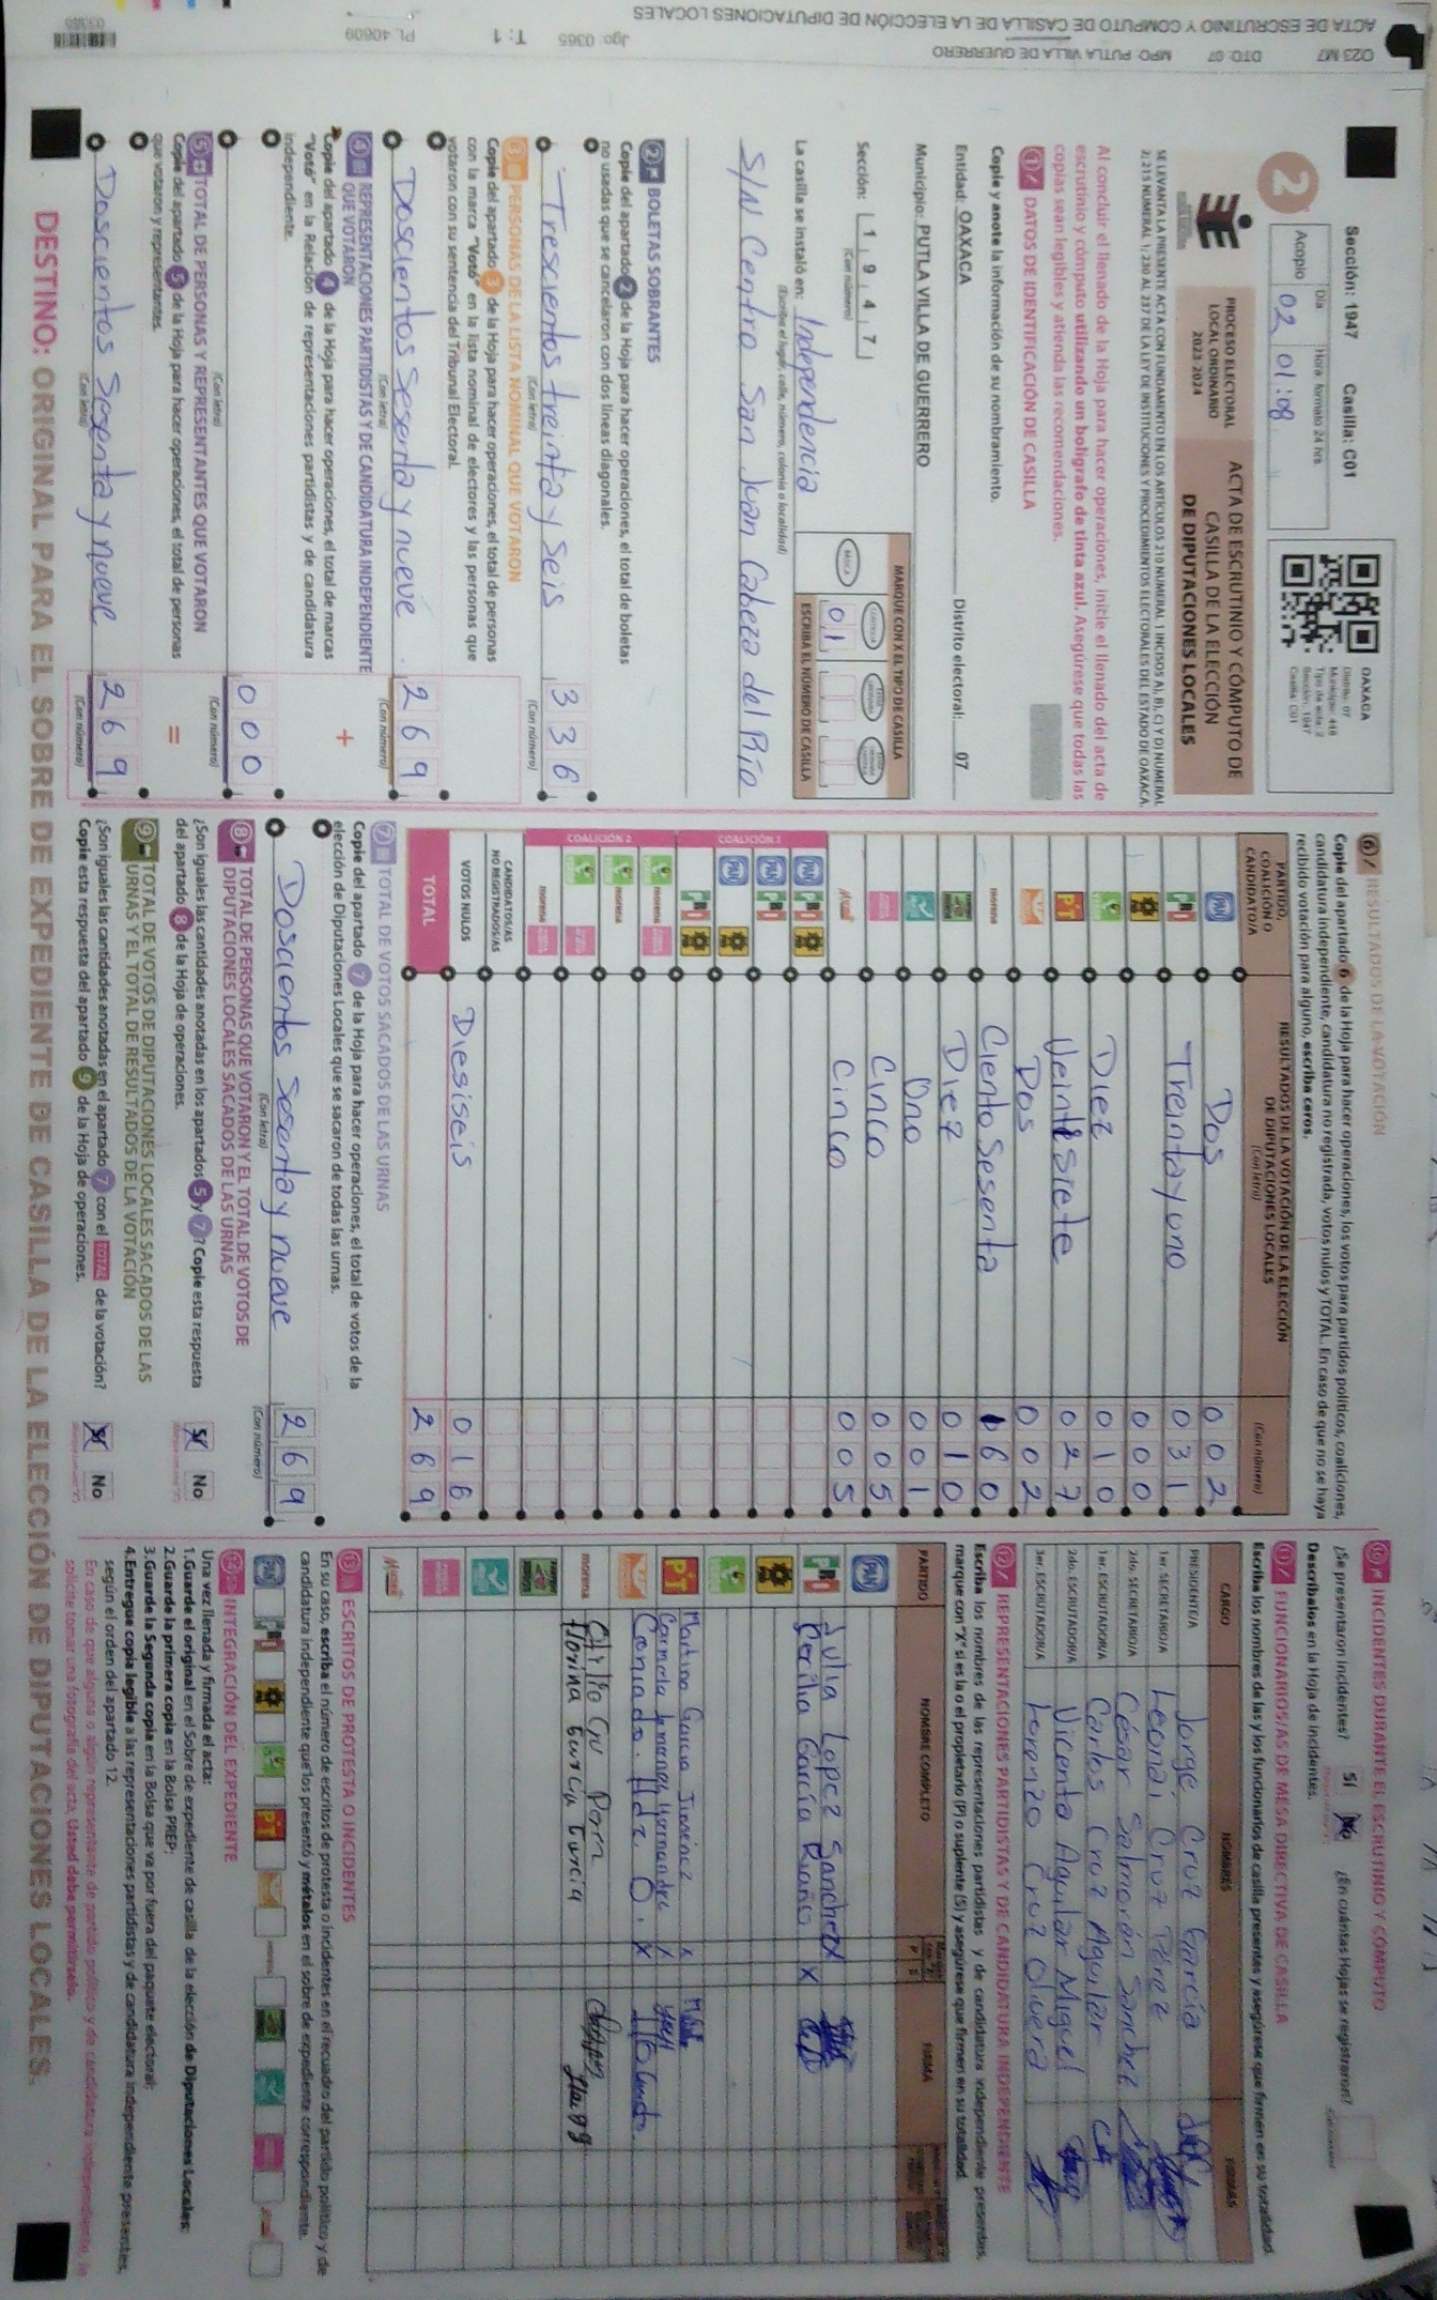 O23 M7 DTO: 07 MPO: PUTLA VILLA DE GUERRERO Jgo: 0365 T: 1 PL 40609
ACTA DE ESCRUTINIO Y CÓMPUTO DE CASILLA DE LA ELECCIÓN DE DIPUTACIONES LOCALES
Sección: 1947 Casilla: C01
2
Día Hora: formato 24 hrs
Acopio 02 01:08
OAXACA
Distrito: 07
Municipio: 448
Tipo de acta: 2
Sección: 1947
Casilla: C01
PROCESO ELECTORAL
LOCAL ORDINARIO
2023-2024
ACTA DE ESCRUTINIO Y CÓMPUTO DE
CASILLA DE LA ELECCIÓN
DE DIPUTACIONES LOCALES
SE LEVANTA LA PRESENTE ACTA CON FUNDAMENTO EN LOS ARTÍCULOS 210 NUMERAL 1 INCISOS A), B), C) Y D) NUMERAL
2; 215 NUMERAL 1; 230 AL 237 DE LA LEY DE INSTITUCIONES Y PROCEDIMIENTOS ELECTORALES DEL ESTADO DE OAXACA.
Al concluir el llenado de la Hoja para hacer operaciones, inicie el llenado del acta de
escrutinio y cómputo utilizando un bolígrafo de tinta azul. Asegúrese que todas las
copias sean legibles y atienda las recomendaciones.
1 DATOS DE IDENTIFICACIÓN DE CASILLA
Copie y anote la información de su nombramiento.
Entidad: OAXACA Distrito electoral: 07
Municipio: PUTLA VILLA DE GUERRERO
Sección: 1 9 4 7
(Con número)
MARQUE CON X EL TIPO DE CASILLA
BÁSICA
0 1
ESCRIBA EL NÚMERO DE CASILLA
La casilla se instaló en: Independencia
(Escriba el lugar, calle, número, colonia o localidad)
S/N Centro San Juan Cabeza del Río
2 BOLETAS SOBRANTES
Copie del apartado 2 de la Hoja para hacer operaciones, el total de boletas
no usadas que se cancelaron con dos líneas diagonales.
Trescientos treinta y seis 3 3 6
(Con letra) (Con número)
3 PERSONAS DE LA LISTA NOMINAL QUE VOTARON
Copie del apartado 3 de la Hoja para hacer operaciones, el total de personas
con la marca "Votó" en la lista nominal de electores y las personas que
votaron con su sentencia del Tribunal Electoral.
Doscientos sesenta y nueve 2 6 9
(Con letra) (Con número)
4 REPRESENTACIONES PARTIDISTAS Y DE CANDIDATURA INDEPENDIENTE
QUE VOTARON
Copie del apartado 4 de la Hoja para hacer operaciones, el total de marcas
"Votó" en la Relación de representaciones partidistas y de candidatura
independiente.
+
0 0 0
(Con letra) (Con número)
5 TOTAL DE PERSONAS Y REPRESENTANTES QUE VOTARON
Copie del apartado 5 de la Hoja para hacer operaciones, el total de personas
que votaron y representantes.
=
Doscientos Sesenta y nueve 2 6 9
(Con letra) (Con número)
6 RESULTADOS DE LA VOTACIÓN
Copie del apartado 6 de la Hoja para hacer operaciones, los votos para partidos políticos, coaliciones,
candidatura independiente, candidatura no registrada, votos nulos y TOTAL. En caso de que no se haya
recibido votación para alguno, escriba ceros.
PARTIDO, COALICIÓN O CANDIDATO/A RESULTADOS DE LA VOTACIÓN DE LA ELECCIÓN DE DIPUTACIONES LOCALES (Con letra) (Con número)
PAN Dos 0 0 2
PRI Treinta y uno 0 3 1
PRD 0 0 0
Diez 0 1 0
PT Veintisiete 0 2 7
Dos 0 0 2
morena Ciento Sesenta 1 6 0
Diez 0 1 0
Uno 0 0 1
Cinco 0 0 5
Cinco 0 0 5
COALICIÓN 1
PAN PRI PRD
PAN PRI
PAN PRD
PRI PRD
COALICIÓN 2
morena
morena
morena
CANDIDATOS/AS
NO REGISTRADOS/AS
VOTOS NULOS Diesiseis 0 1 6
TOTAL 2 6 9
7 TOTAL DE VOTOS SACADOS DE LAS URNAS
Copie del apartado 7 de la Hoja para hacer operaciones, el total de votos de la
elección de Diputaciones Locales que se sacaron de todas las urnas.
Doscientos Sesenta y nueve 2 6 9
(Con letra) (Con número)
8 TOTAL DE PERSONAS QUE VOTARON Y EL TOTAL DE VOTOS DE
DIPUTACIONES LOCALES SACADOS DE LAS URNAS
¿Son iguales las cantidades anotadas en los apartados 5 y 7? Copie esta respuesta
del apartado 8 de la Hoja de operaciones.
Sí No
9 TOTAL DE VOTOS DE DIPUTACIONES LOCALES SACADOS DE LAS
URNAS Y EL TOTAL DE RESULTADOS DE LA VOTACIÓN
¿Son iguales las cantidades anotadas en el apartado 7 con el TOTAL de la votación?
Copie esta respuesta del apartado 9 de la Hoja de operaciones.
Sí No
10 INCIDENTES DURANTE EL ESCRUTINIO Y CÓMPUTO
¿Se presentaron incidentes? Sí No ¿En cuántas Hojas se registraron?
Descríbalos en la Hoja de incidentes.
11 FUNCIONARIOS/AS DE MESA DIRECTIVA DE CASILLA
Escriba los nombres de las y los funcionarios de casilla presentes y asegúrese que firmen en su totalidad.
CARGO NOMBRES FIRMAS
PRESIDENTE/A Jorge Cruz García
1er. SECRETARIO/A Leonai Cruz Pérez
2do. SECRETARIO/A César Salmorán Sánchez
1er. ESCRUTADOR/A Carlos Cruz Aguilar
2do. ESCRUTADOR/A Vicenta Aguilar Miguel
3er. ESCRUTADOR/A Lorenzo Cruz Olvera
12 REPRESENTACIONES PARTIDISTAS Y DE CANDIDATURA INDEPENDIENTE
Escriba los nombres de las representaciones partidistas y de candidatura independiente presentes,
marque con "X" si es la o el propietario (P) o suplente (S) y asegúrese que firmen en su totalidad.
PARTIDO NOMBRE COMPLETO P S FIRMA
PAN
PRI Julia Lopez Sanchez X
Cecilia García Riaño X
PRD
PT Martina Garcia Jimenez X
Carmela Hernandez X
Coniado. Hdz. O. X
morena
Florina Garcia Garcia
13 ESCRITOS DE PROTESTA O INCIDENTES
En su caso, escriba el número de escritos de protesta o incidentes en el recuadro del partido político y de
candidatura independiente que los presentó y métalos en el sobre de expediente correspondiente.
INTEGRACIÓN DEL EXPEDIENTE
Una vez llenada y firmada el acta:
1.Guarde el original en el Sobre de expediente de casilla de la elección de Diputaciones Locales;
2.Guarde la primera copia en la Bolsa PREP;
3.Guarde la Segunda copia en la Bolsa que va por fuera del paquete electoral;
4.Entregue copia legible a las representaciones partidistas y de candidatura independiente presentes,
según el orden del apartado 12.
En caso de que alguna o algún representante de partido político y de candidatura independiente, le
solicite tomar una fotografía del acta, Usted debe permitírselo.
DESTINO: ORIGINAL PARA EL SOBRE DE EXPEDIENTE DE CASILLA DE LA ELECCIÓN DE DIPUTACIONES LOCALES.